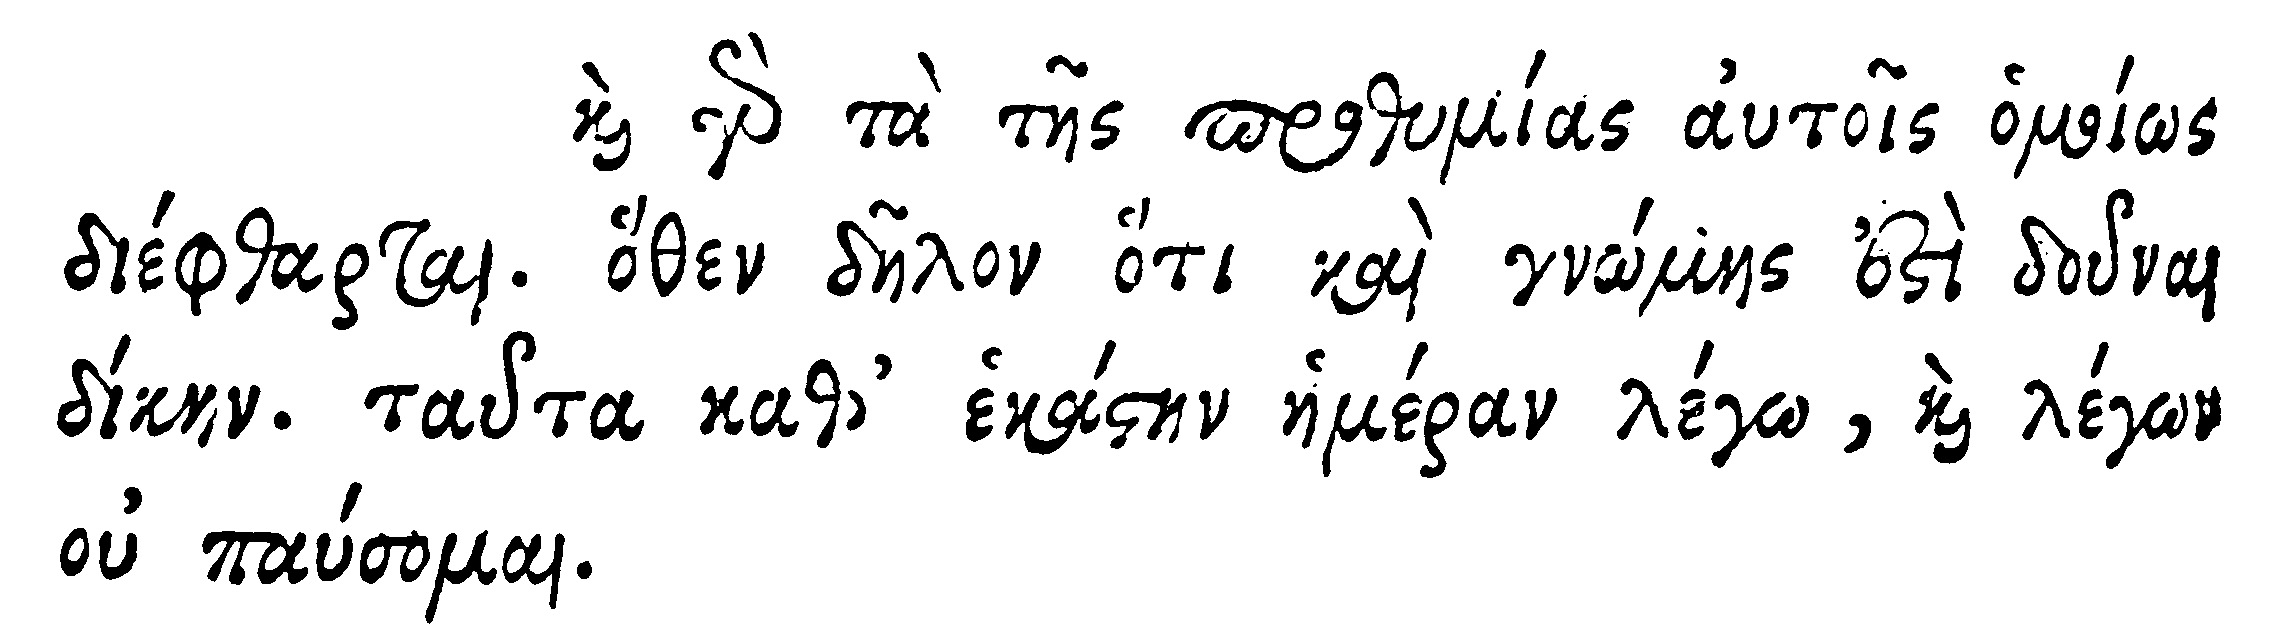 καὶ γὰρ τὰ τῆς προθυμίας αὐτοῖς ὁμοίως
διέφθαρται. ὅθεν δῆλον ὅτι καὶ γνώμης ἐστὶ δοῦναι
δίκην. ταῦτα καθ’ ἑκάστην ἡμέραν λέγω, καὶ λέγων
οὐ παύσομαι.